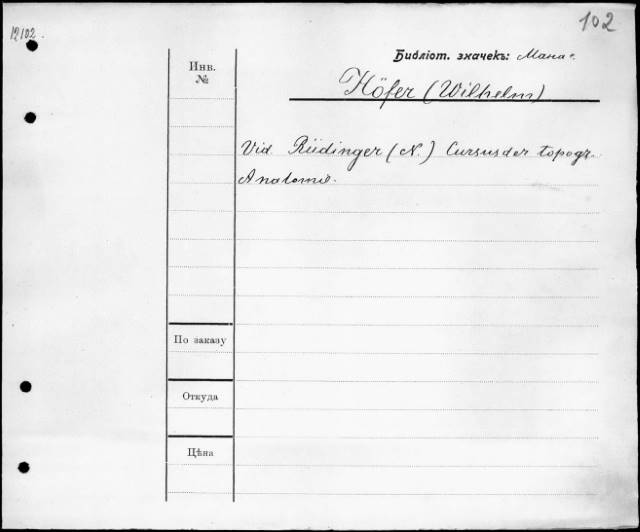 12102.
102
Библіот. значекъ:
Инв.
№
Höfer (Wilhelm)
Vid. Rüdinger (N.) Cursus der topogr.
Anatomie.
По заказу
Откуда
Цѣна